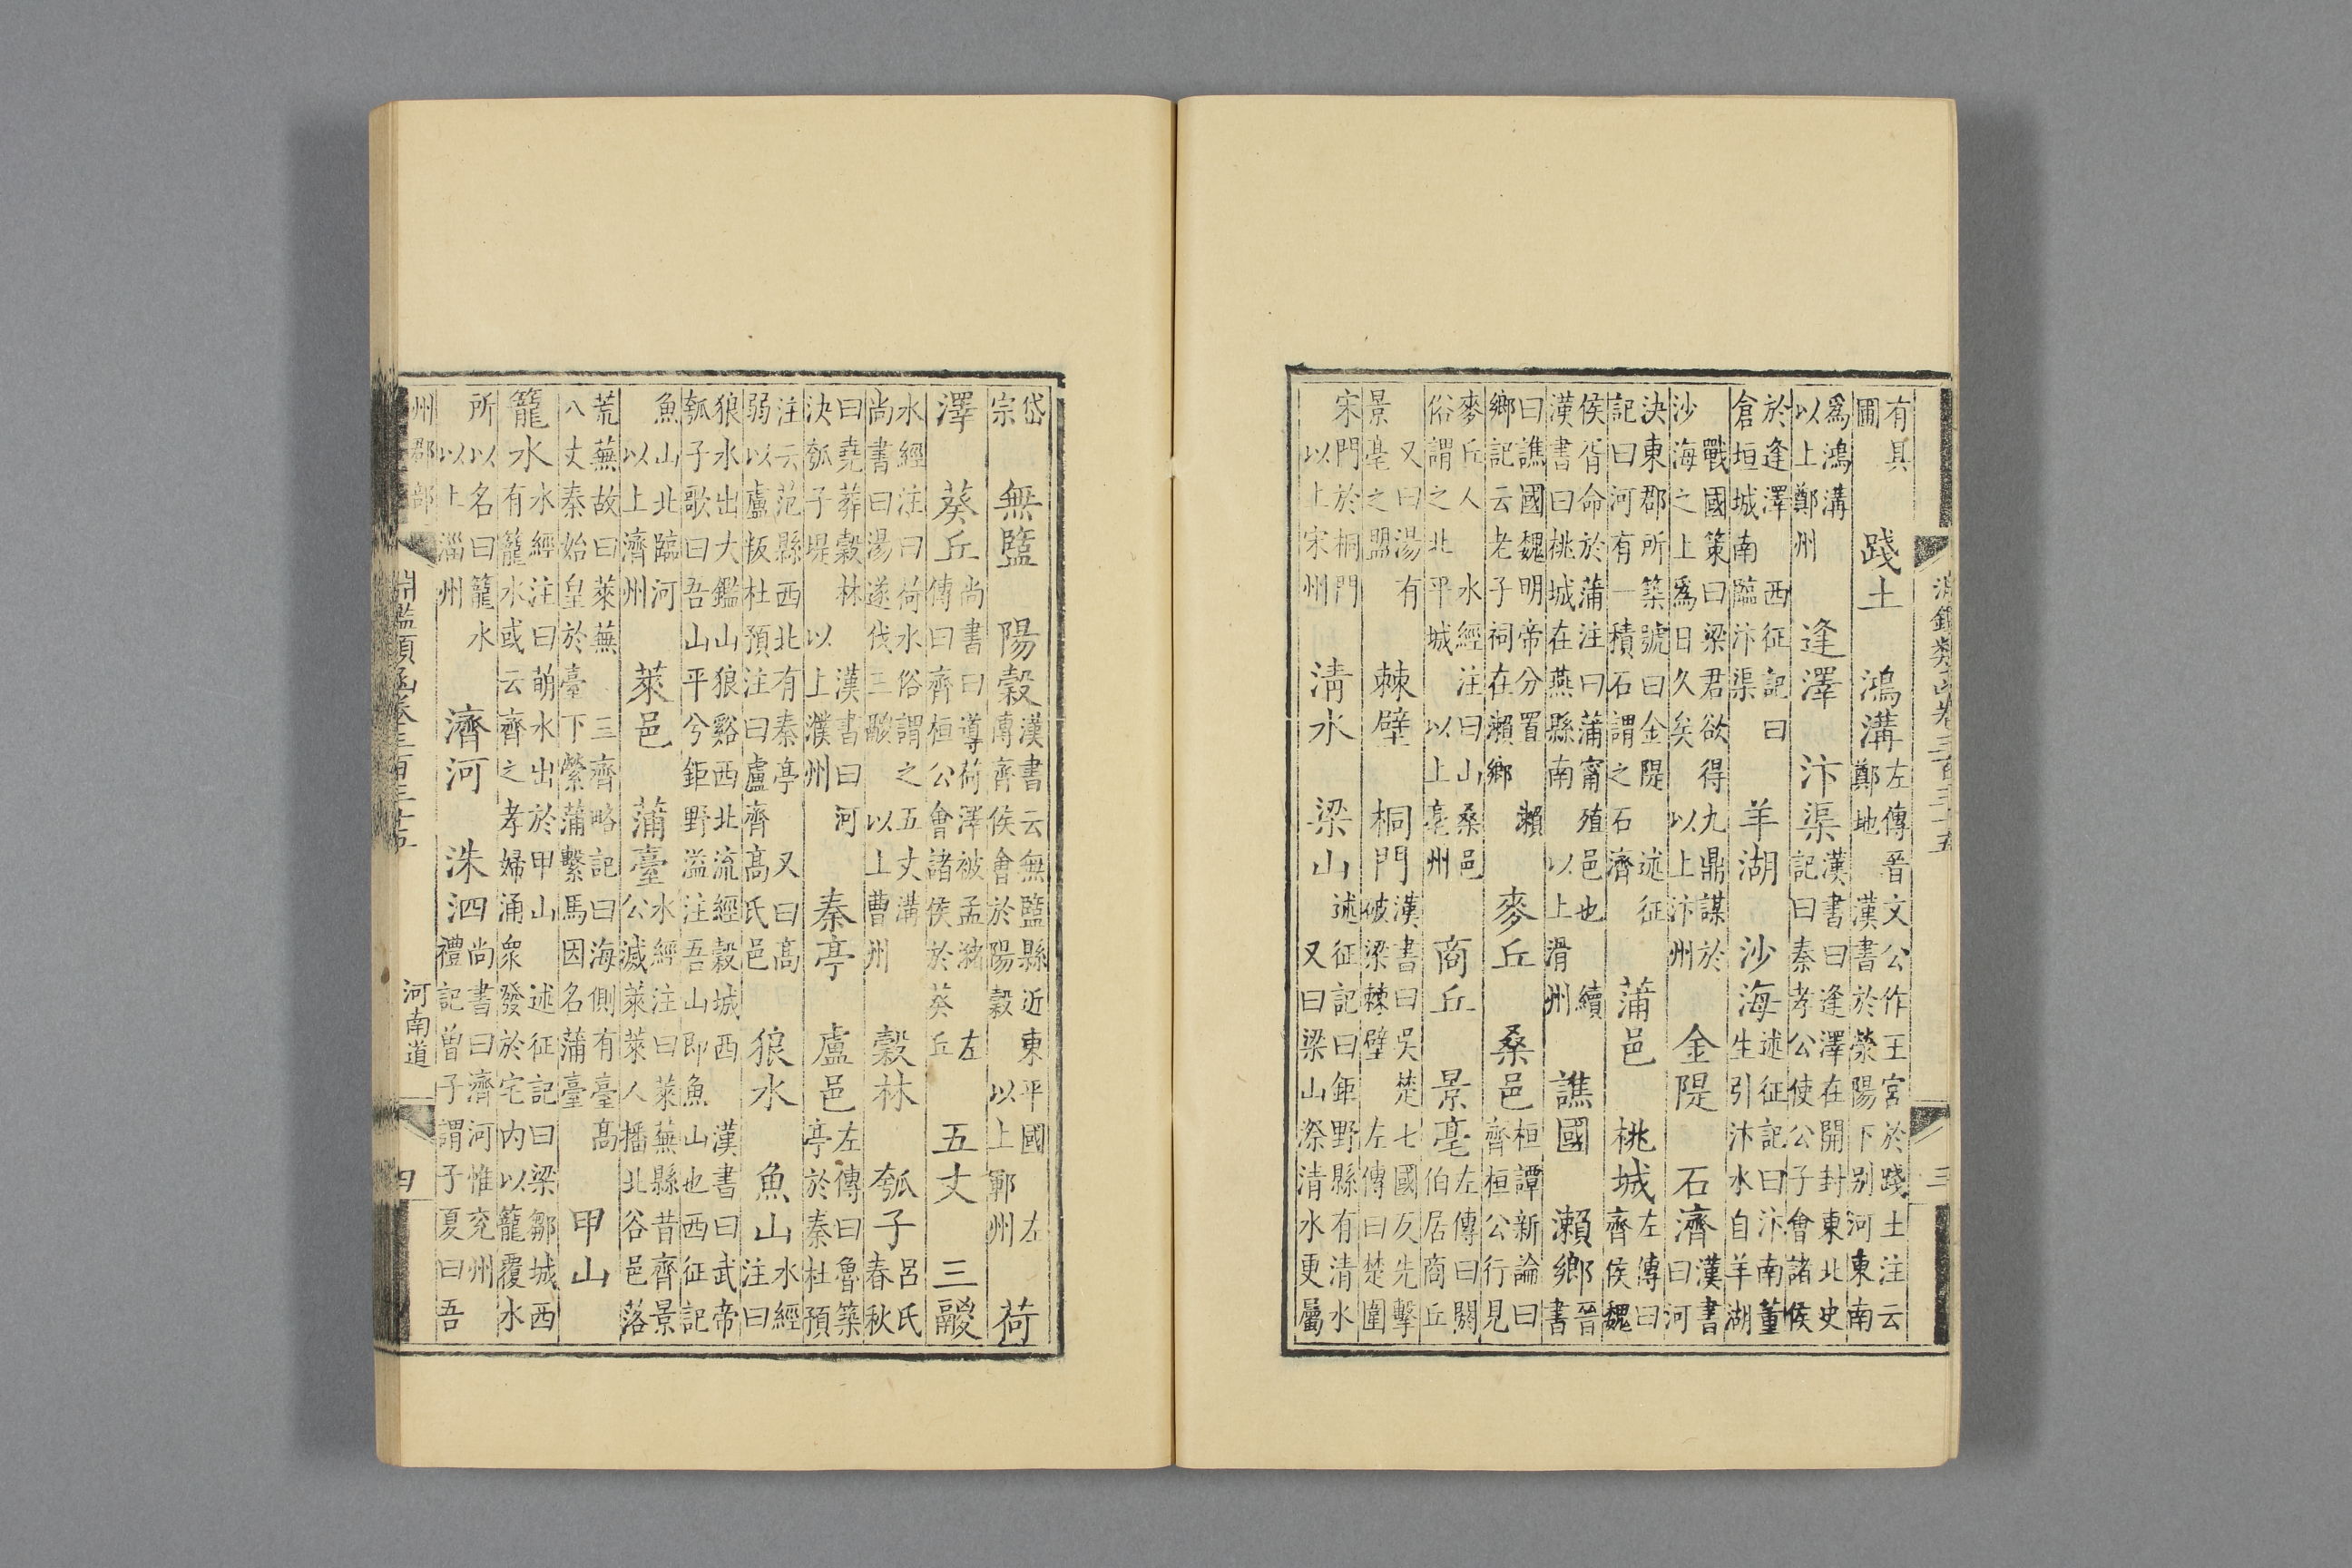 有具圃 踐土 鴻溝 左傳晉文公作王宮於踐土注云鄭地 漢書於滎陽下別河東南
爲鴻溝 以上鄭州 逢澤 汴渠 漢書曰逢澤在開封東北史記曰秦孝公使公子會諸侯
於逢澤 西征記曰倉垣城南臨汴渠 羊湖 沙海 述征記曰汴南董生引汴水自羊湖
戰國策曰梁君欲得九鼎謀於沙海之上爲日久矣 以上汴州 金隄 石濟 漢書曰河
決東郡所築號曰金隄 述征記曰河有一積石謂之石濟 蒲邑 桃城 左傳曰齊侯魏
侯胥命於蒲注曰蒲甯殖邑也 續漢書曰桃城在燕縣南 以上滑州 譙國 瀨鄉 晉書
曰譙國魏明帝分置 瀨鄉記云老子祠在瀨鄉 麥丘 桑邑 桓譚新論曰齊桓公行見
麥丘人 水經注曰山桑邑俗謂之北平城 以上亳州 商丘 景亳 左傳曰閼伯居商丘
又曰湯有景亳之盟 棘壁 桐門 漢書曰吳楚七國反先擊破梁棘壁 左傳曰楚圍
宋門於桐門 以上宋州 清水 梁山 述征記曰鉅野縣有清水 又曰梁山際清水更屬
三
岱宗 無鹽 陽穀 漢書云無鹽縣近東平國 左傳齊侯會於陽穀 以上鄆州 荷
澤 葵丘 尚書曰導荷澤被孟瀦 左傳曰齊桓公會諸侯於葵丘 五丈 三鬷
水經注曰荷水俗謂之五丈溝 尚書曰湯遂伐三鬷 以上曹州 穀林 瓠子 呂氏春秋
曰堯葬穀林 漢書曰河決瓠子堤 以上濮州 秦亭 盧邑 左傳曰魯築亭於秦杜預
注云范縣西北有秦亭 又曰高弱以盧叛杜預注曰盧齊高氏邑 狼水 魚山 水經注曰
狼水出大鑑山狼谿西北流經穀城西 漢書曰武帝瓠子歌曰吾山平兮鉅野溢注吾山即魚山也 西征記
魚山北臨河 以上濟州 萊邑 蒲臺 水經注曰萊蕪縣昔齊景公滅萊萊人播北谷邑落
荒蕪故曰萊蕪 三齊略記曰海側有臺高八丈秦始皇於臺下縈蒲繫馬因名蒲臺 甲山
籠水 水經注曰萌水出於甲山 述征記曰梁鄒城西有籠水或云齊之孝婦涌衆發於宅内以籠覆水
所以名曰籠水 以上淄州 濟河 洙泗 尚書曰濟河惟兗州 禮記曾子謂子夏曰吾
州郡部 河南道
淵鑑類函卷三百三十五 四